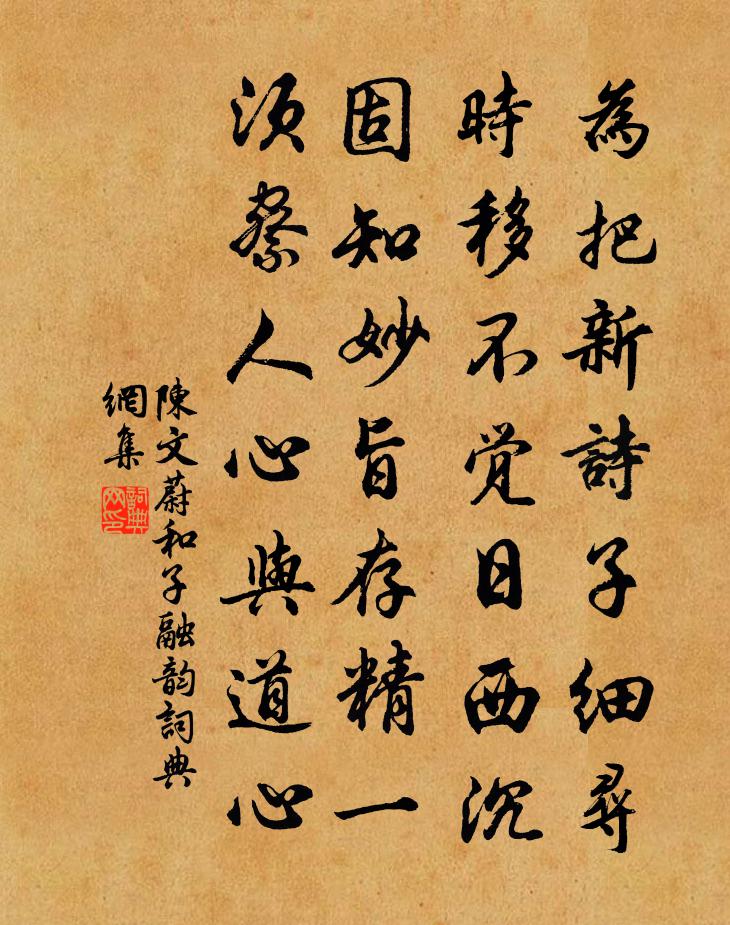 為把新詩子細尋
時移不覚日西沉
固知妙旨存精一
須察人心與道心
陳文蔚和子融韵詞典
網集
詞典网印